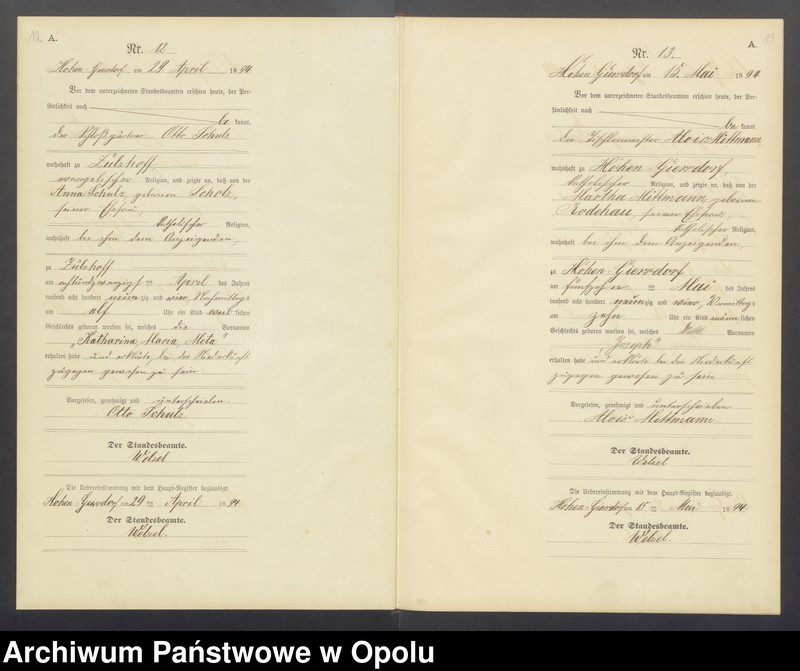 12
A.
Nr. 12
Hohen-Giersdorf am 29 April 1894
Vor dem unterzeichneten Standesbeamten erschien heute, der Per-
sönlichkeit nach
be kannt,
der Schloßgärtner Otto Schulz
wohnhaft zu Zülzhoff
evangelischer Religion, und zeigte an, daß von der
Anna Schulz geborenen Scholz,
seiner Ehefrau,
katholischer Religion,
wohnhaft bei ihm dem Anzeigenden,
zu Zülzhoff
am achtundzwanzigsten April des Jahres
tausend acht hundert neunzig und vier, Nachmittags
um elf Uhr ein Kind weiblichen
Geschlechts geboren worden sei, welches die Vornamen
„Katharina, Maria, Meta"
erhalten habe und erklärte, bei der Niederkunft
zugegen gewesen zu sein.
Vorgelesen, genehmigt und unterschrieben.
Otto Schulz
Der Standesbeamte.
Welzel
Die Uebereinstimmung mit dem Haupt-Register beglaubigt.
Hohen-Giersdorf am 29 ten April 1894
Der Standesbeamte.
Welzel.
13
A.
Nr. 13.
Hohen-Giersdorf am 15. Mai 1894
Vor dem unterzeichneten Standesbeamten erschien heute, der Per-
sönlichkeit nach
be kannt,
der Tischlermeister Alois Mittmann,
wohnhaft zu Hohen-Giersdorf,
katholischer Religion, und zeigte an, daß von der
Martha Mittmann geborenen
Rodehau, seiner Ehefrau,
katholischer Religion,
wohnhaft bei ihm dem Anzeigenden,
zu Hohen-Giersdorf
am fünfzehnten Mai des Jahres
tausend acht hundert neunzig und vier, Vormittags
um zehn Uhr ein Kind männlichen
Geschlechts geboren worden sei, welches Vornamen
„Joseph"
erhalten habe und erklärte bei der Niederkunft
zugegen gewesen zu sein.
Vorgelesen, genehmigt und unterschrieben
Alois Mittmann
Der Standesbeamte.
Welzel
Die Uebereinstimmung mit dem Haupt-Register beglaubigt.
Hohen-Giersdorf am 15 ten Mai 1894
Der Standesbeamte.
Welzel.
Archiwum Państwowe w Opolu